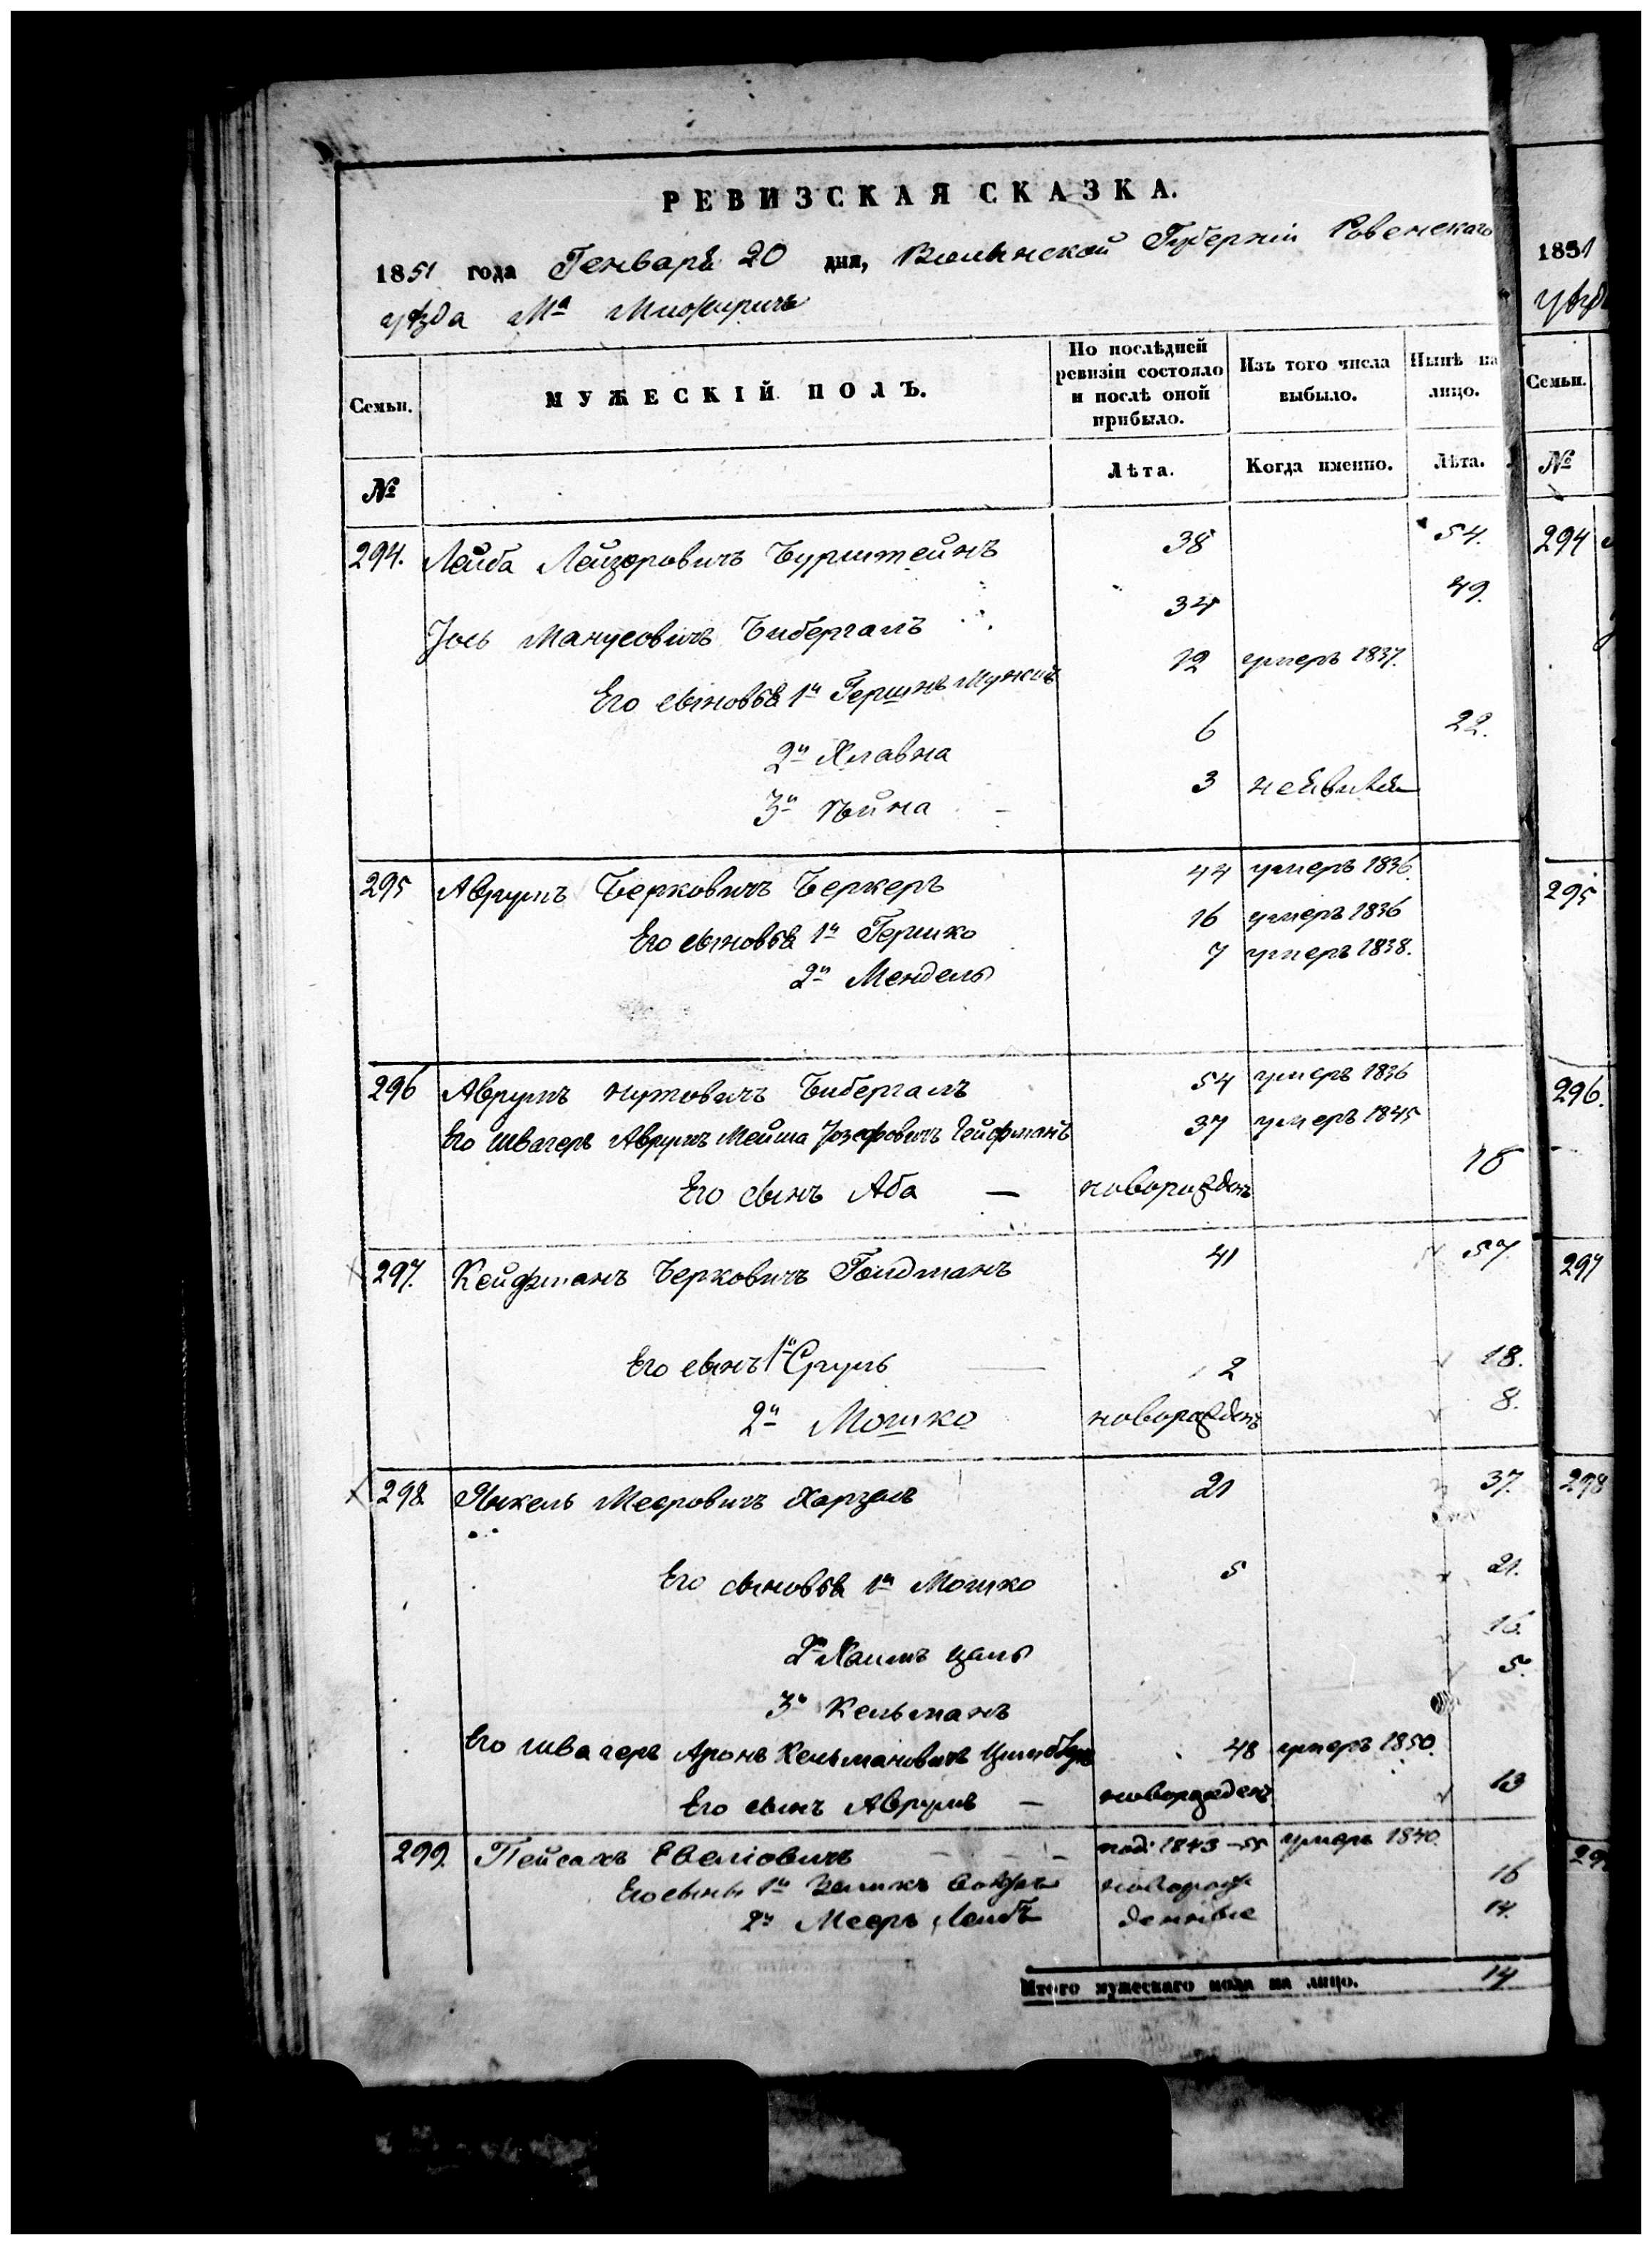 РЕВИЗСКАЯ СКАЗКА.
1851 года Генваря 20 дня, Волынской Губерніи Ровенскаго
уѣзда Мª Межиричъ
Семьи.
МУЖЕСКІЙ ПОЛЪ.
По послѣдней ревизіи состояло и послѣ оной прибыло.
Изъ того числа выбыло.
Нынѣ на лицо.
№
Лѣта.
Когда именно.
Лѣта.
294. Лейба Лейзоровичъ Бурштейнъ 38 54.
Іось Манусовичъ Бибергалъ 34 49.
Его сыновья 1й Гершнъ 12 умеръ 1837.
2й Хлавна 6 22.
3й 3
295 Аврумъ Берковичъ Беркеръ 44 умеръ 1836.
Его сыновья 1й Гершко 16 умеръ 1836
2й Мендель 7 умеръ 1838.
296 Аврумъ Нутовичъ Бибергалъ 54 умеръ 1836
Его швагеръ Аврумъ Мейша Іозефовичъ 37 умеръ 1845
Его сынъ Аба — новорожденъ 16
297. Кейфманъ Берковичъ Голдманъ 41 57.
Его сынъ 1й Сруль 2 18.
2й Мошко новорожденъ 8.
298 Янкель Мееровичъ 21 37.
Его сыновья 1й Мошко 5 21.
2й Хаимъ 16.
3й Кельманъ 5.
Его швагеръ Аронъ Кельмановичъ 48 умеръ 1850.
Его сынъ Аврумъ — новорожденъ 13
299. Пейсахъ Евеліовичъ 1843 - 55 умеръ 1840.
Его сыны 1й Зелихъ новорож 16
2й Мееръ Лейбъ денные 14.
Итого мужескаго пола на лицо. 14
1851
уѣзд
Семьи.
№
294
295
296.
297
298
29